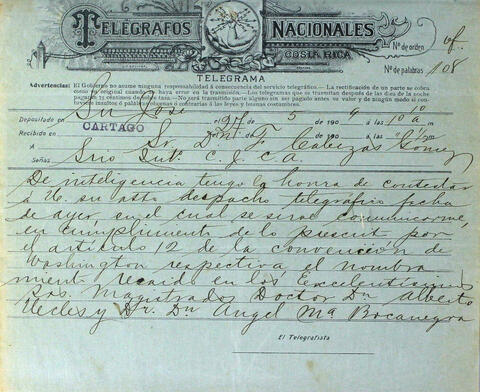 TELÉGRAFOS NACIONALES
COSTA RICA
Nº de orden of.
Nº de palabras 108
TELEGRAMA
Advertencias: El Gobierno no asume ninguna responsabilidad á consecuencia del servicio telegráfico. — La rectificación de un parte se cobra
como un original cuando no haya error en la trasmisión. — Los telegramas que se tramitan después de las días de la noche
pagarán 75 céntimos de sobre tasa. — No será trasmitido parte alguno sin ser pagado antes su valor y de ningún modo si
contiene insultos ó palabras obscenas ó contrarias á las leyes y buenas costumbres.
Depositado en San José el 5 de 190 9 á las 10 a m
Recibido en CARTAGO de 190 á las m
A Sr. Dn. F. Cabezas Gomez
Señas Srio Intº. C. J. C. A.
De inteligencia tengo la honra de contestar
á Ud. su atto despacho telegráfico fecha
de ayer, en el cual se sirve comunicarme,
en cumplimento de lo prescrit por
el artículo 12 de la convención de
Washington respectiva el nombra
miento recaido en los Excelentísimos
Srs. Magistrados Doctor Dn Alberto
Uclés y Dr. Dn Angel Mª Bocanegra
El Telegrafista